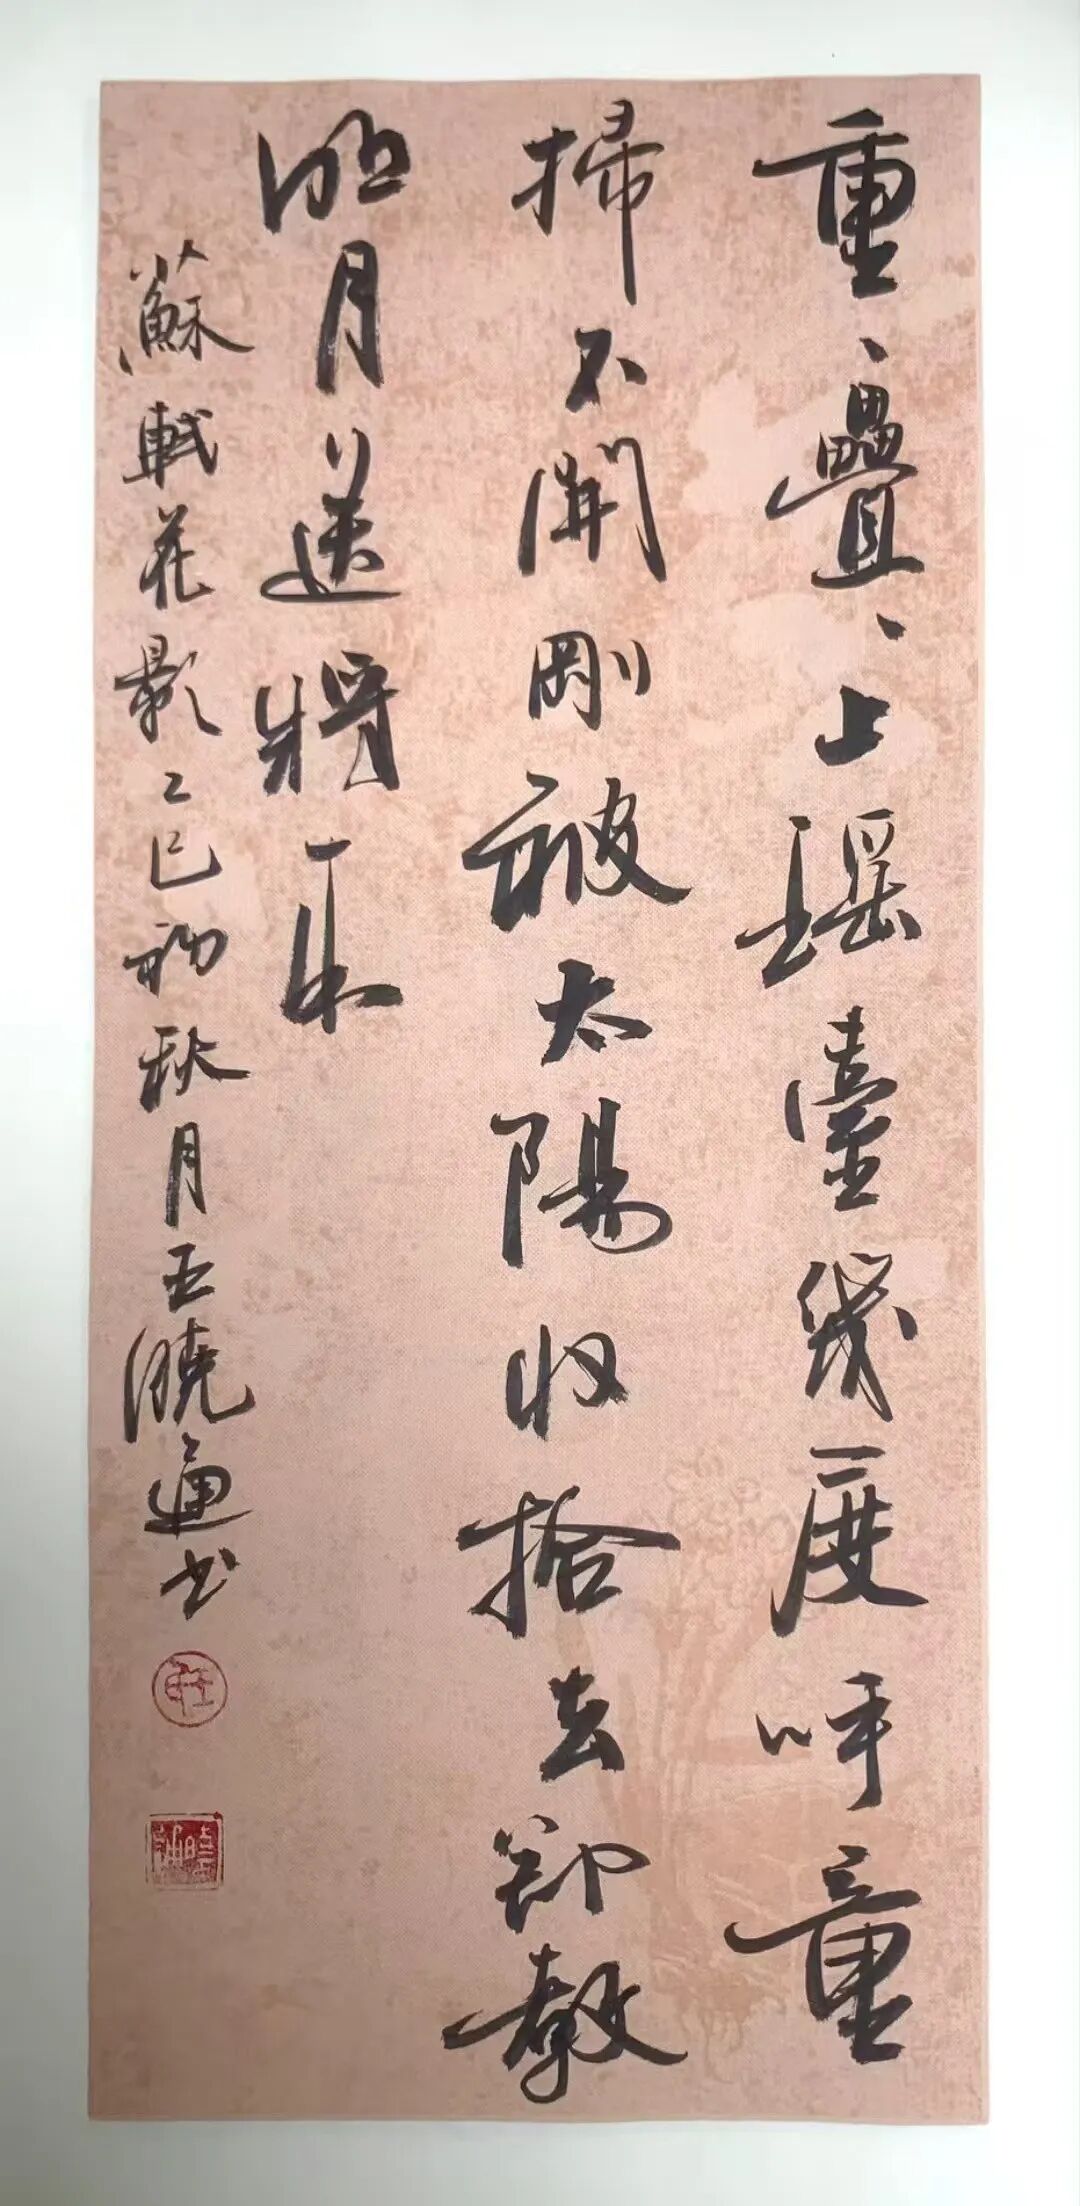 重、疊、上瑶臺幾度呼童
掃不開剛被太陽收拾去却教
明月送將來
蘇軾花影乙巳初秋月王曉通书